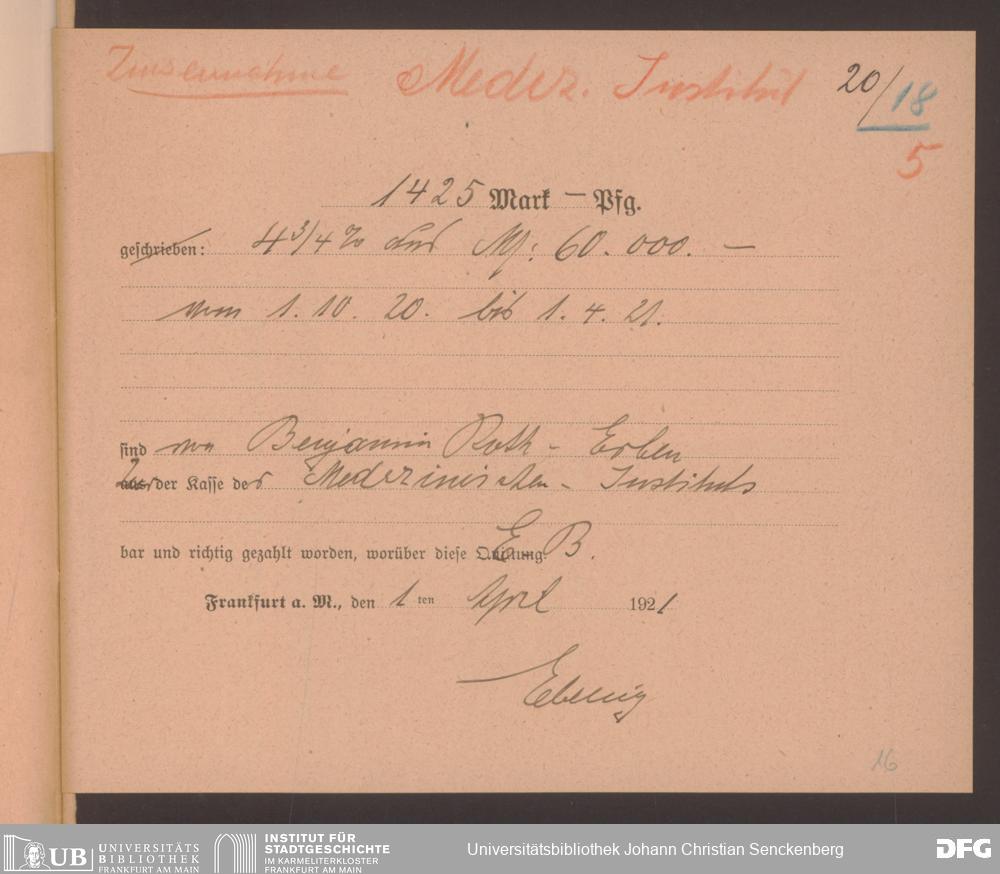 Zinseinnahme Medez. Institut 20/18
5
1425 Mark — Pfg.
geschrieben: 4 3/4 % aus M: 60.000. —
vom 1. 10. 20. bis 1. 4. 21.
sind von Benjamin Roth - Erben
der Kasse des Medezinischen - Instituts
bar und richtig gezahlt worden, worüber diese Quittung. E. B.
Frankfurt a. M., den 1 ten April 1921
16
UB UNIVERSITÄTS
BIBLIOTHEK
FRANKFURT AM MAIN
INSTITUT FÜR
STADTGESCHICHTE
IM KARMELITERKLOSTER
FRANKFURT AM MAIN
Universitätsbibliothek Johann Christian Senckenberg
DFG